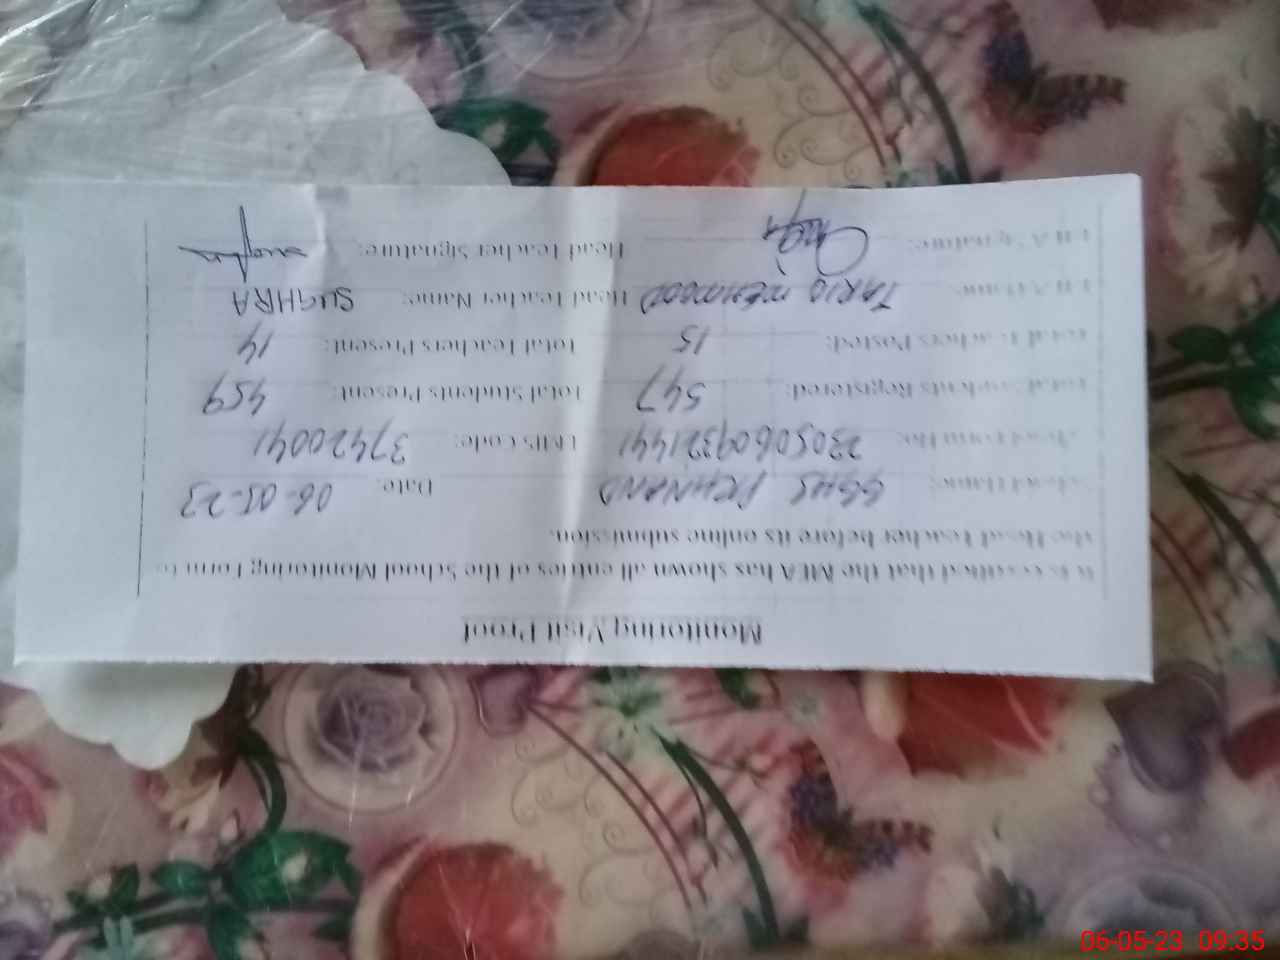 Monitoring Visit Proof
It is certified that the MEA has shown all entries of the School Monitoring Form to
the Head Teacher before its online submission.
School Name: GGHS PICHNAND Date: 06-05-23
EMIS Code: 37420041
Total Students Registered: 547 Total Students Present: 459
Total Teachers Posted: 15 Total Teachers Present: 14
MEA Name: TARIQ MEHMOOD Head Teacher Name: SUGHRA
MEA Signature: Head Teacher Signature:
06-05-23 09:35